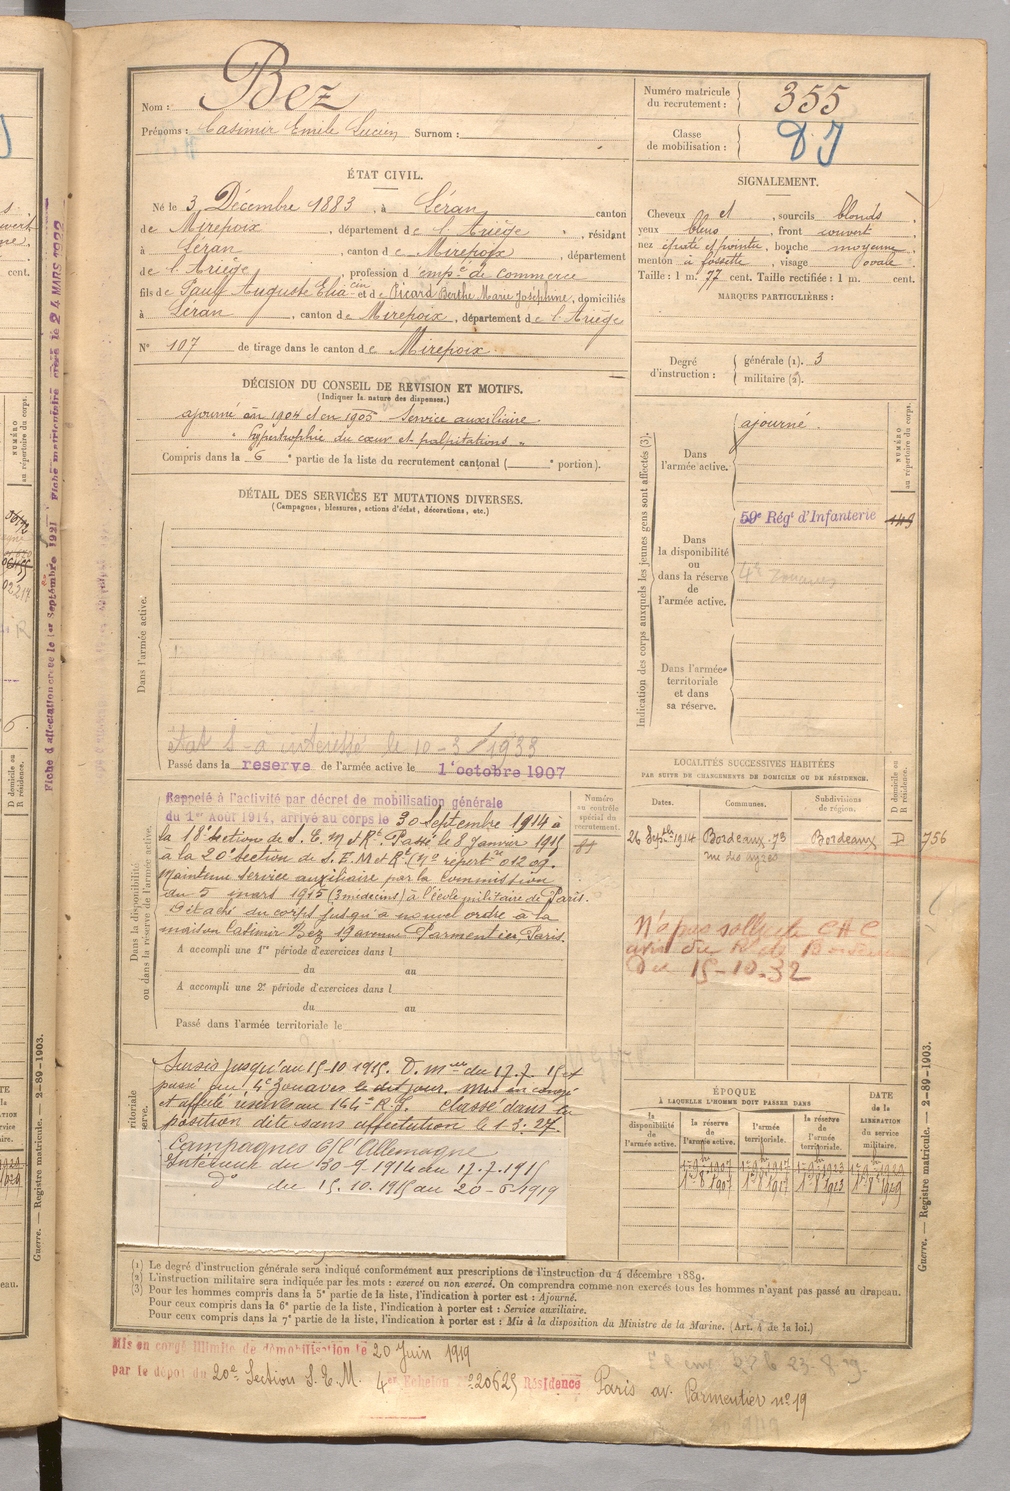 Bez
Nom :
Numéro matricule
du recrutement : 355
Prénoms : Casimir Emile Lucien Surnom :
Classe
de mobilisation :
ÉTAT CIVIL.
Né le 3 Décembre 1883, à Léran canton
de Mirepoix, département de l'Ariège, résidant
à Léran, canton de Mirepoix, département
de l'Ariège, profession d'emp. de Commerce
fils de Paul Auguste Elia cin et de Picard Berthe Marie Joséphine, domiciliés
à Léran, canton de Mirepoix, département de l'Ariège
N° 107 de tirage dans le canton de Mirepoix
SIGNALEMENT.
Cheveux et , sourcils blonds
yeux bleus , front couvert
nez épaté et pointe, bouche moyenne
menton à fossette , visage ovale
Taille : 1 m. 77 cent. Taille rectifiée : 1 m. cent.
MARQUES PARTICULIÈRES :
Degré
d'instruction :
générale (1). 3
militaire (2).
DÉCISION DU CONSEIL DE REVISION ET MOTIFS.
(Indiquer la nature des dispenses.)
ajourné en 1904 et en 1905 Service auxiliaire
" hypertrophie du cœur et palpitations "
Compris dans la 6e partie de la liste du recrutement cantonal ( e portion).
Indication des corps auxquels les jeunes gens sont affectés (3).
NUMÉRO
au répertoire du corps.
Dans
l'armée active.
ajourné.
Dans
la disponibilité
ou
dans la réserve
de
l'armée active.
59e Régt d'Infanterie 149
4e Zouaves
Dans l'armée
territoriale
et dans
sa réserve.
DÉTAIL DES SERVICES ET MUTATIONS DIVERSES.
(Campagnes, blessures, actions d'éclat, décorations, etc.)
Dans l'armée active.
Etat S à intéressé le 10-3-1933
Passé dans la reserve de l'armée active le 1er octobre 1907
Dans la disponibilité
ou dans la réserve de l'armée active.
Rappelé à l'activité par décret de mobilisation générale
du 1er Aout 1914, arrivé au corps le 30 Septembre 1914 à
la 18e Section de S. E. M et Rt. Passé le 8 Janvier 1915
à la 20e section de S. E. M et Rt (N° répertre 01209.
Maintenu Service auxiliaire par la Commission
du 5 mars 1915 (3 médecins) à l'école militaire de Paris.
Détaché du corps jusqu'à nouvel ordre à la
maison Casimir Bez 19 avenue Parmentier, Paris.
A accompli une 1re période d'exercices dans l
du au
A accompli une 2e période d'exercices dans l
du au
Passé dans l'armée territoriale le
Numéro
au contrôle
spécial du
recrutement.
LOCALITÉS SUCCESSIVES HABITÉES
PAR SUITE DE CHANGEMENTS DE DOMICILE OU DE RÉSIDENCE.
Dates. Communes. Subdivisions
de région.
D domicile ou
R résidence.
26 Septbre 1914 Bordeaux 73 Bordeaux D 756
N'a pas sollicité C H C
avis du de Bordeaux
Du 15-10-32
Sursis jusqu'au 15-10-1915. D. mlle du 17.7.15 et
passé au 4e Zouaves le dit jour. Mis en congé
et affecté réserve au 144e R.I. Classé dans la
position dite sans affectation le 1.3.27.
Campagnes C/C l'Allemagne
Intérieur du 30-9-1914 au 17.7.1915
do du 15.10.1915 au 20-6-1919
ÉPOQUE
À LAQUELLE L'HOMME DOIT PASSER DANS
la
disponibilité
de
l'armée active.
la réserve
de
l'armée active.
l'armée
territoriale.
la réserve
de
l'armée
territoriale.
DATE
de la
LIBÉRATION
du
service
militaire.
(1) Le degré d'instruction générale sera indiqué conformément aux prescriptions de l'instruction du 4 décembre 1889.
(2) L'instruction militaire sera indiquée par les mots : exercé ou non exercé. On comprendra comme non exercés tous les hommes n'ayant pas passé au drapeau.
(3) Pour les hommes compris dans la 5e partie de la liste, l'indication à porter est : Ajourné.
Pour ceux compris dans la 6e partie de la liste, l'indication à porter est : Service auxiliaire.
Pour ceux compris dans la 7e partie de la liste, l'indication à porter est : Mis à la disposition du Ministre de la Marine. (Art. 4 de la loi.)
Mis en congé illimité de démobilisation le 20 Juin 1919
par le dépôt du 20e Section S. E. M. 4e Echelon N° 20625 Résidence Paris av. Parmentier n° 19
Guerre. — Registre matricule. — 2-89-1903.
Guerre. — Registre matricule. — 2-89-1903.
Fiche d'affectation créée le 1er Septembre 1921 Fiche matriculaire créée le 24 MARS 1922